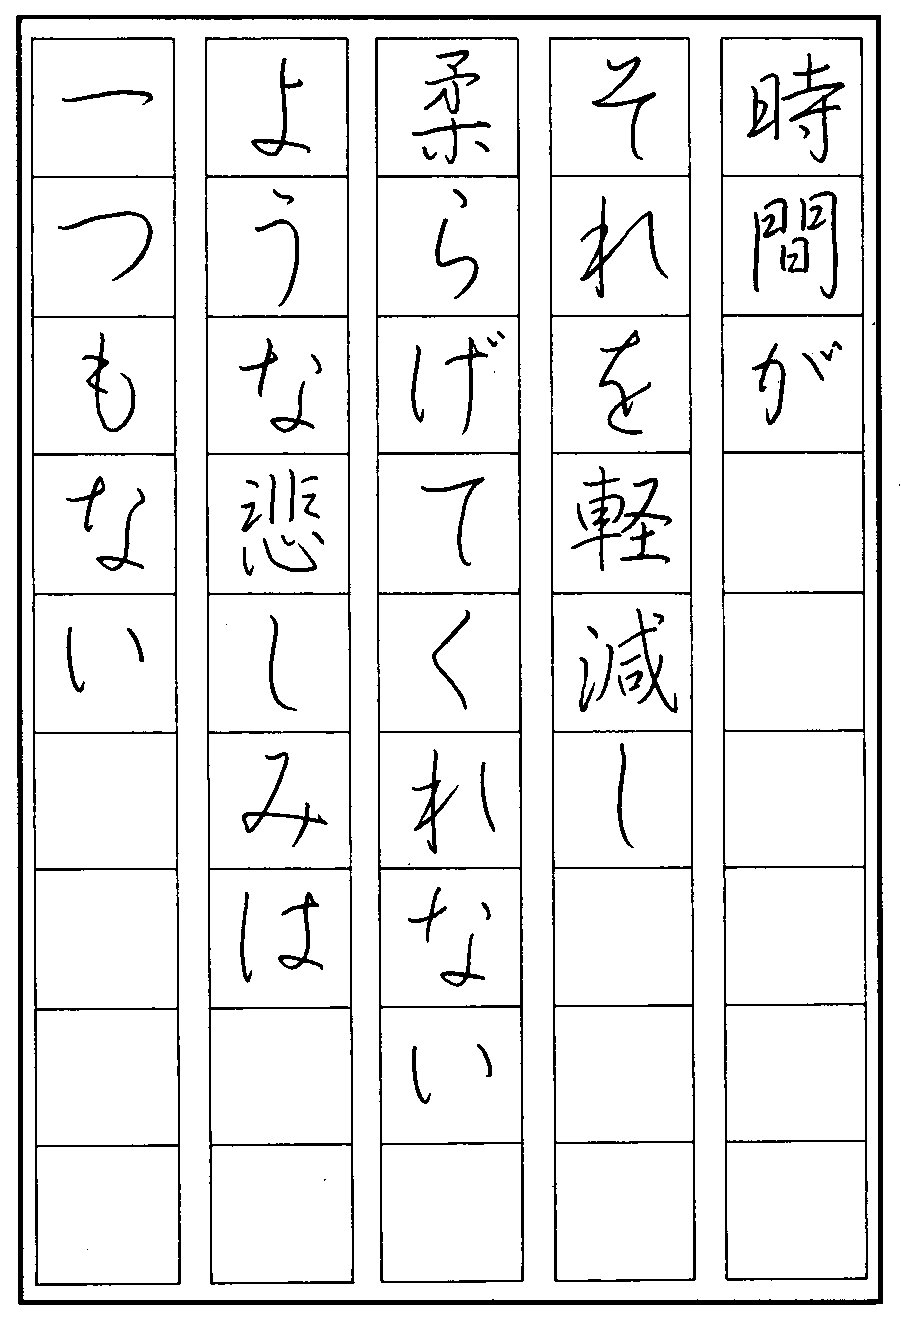 時間が
それを軽減し
柔らげてくれない
ような悲しみは
一つもない